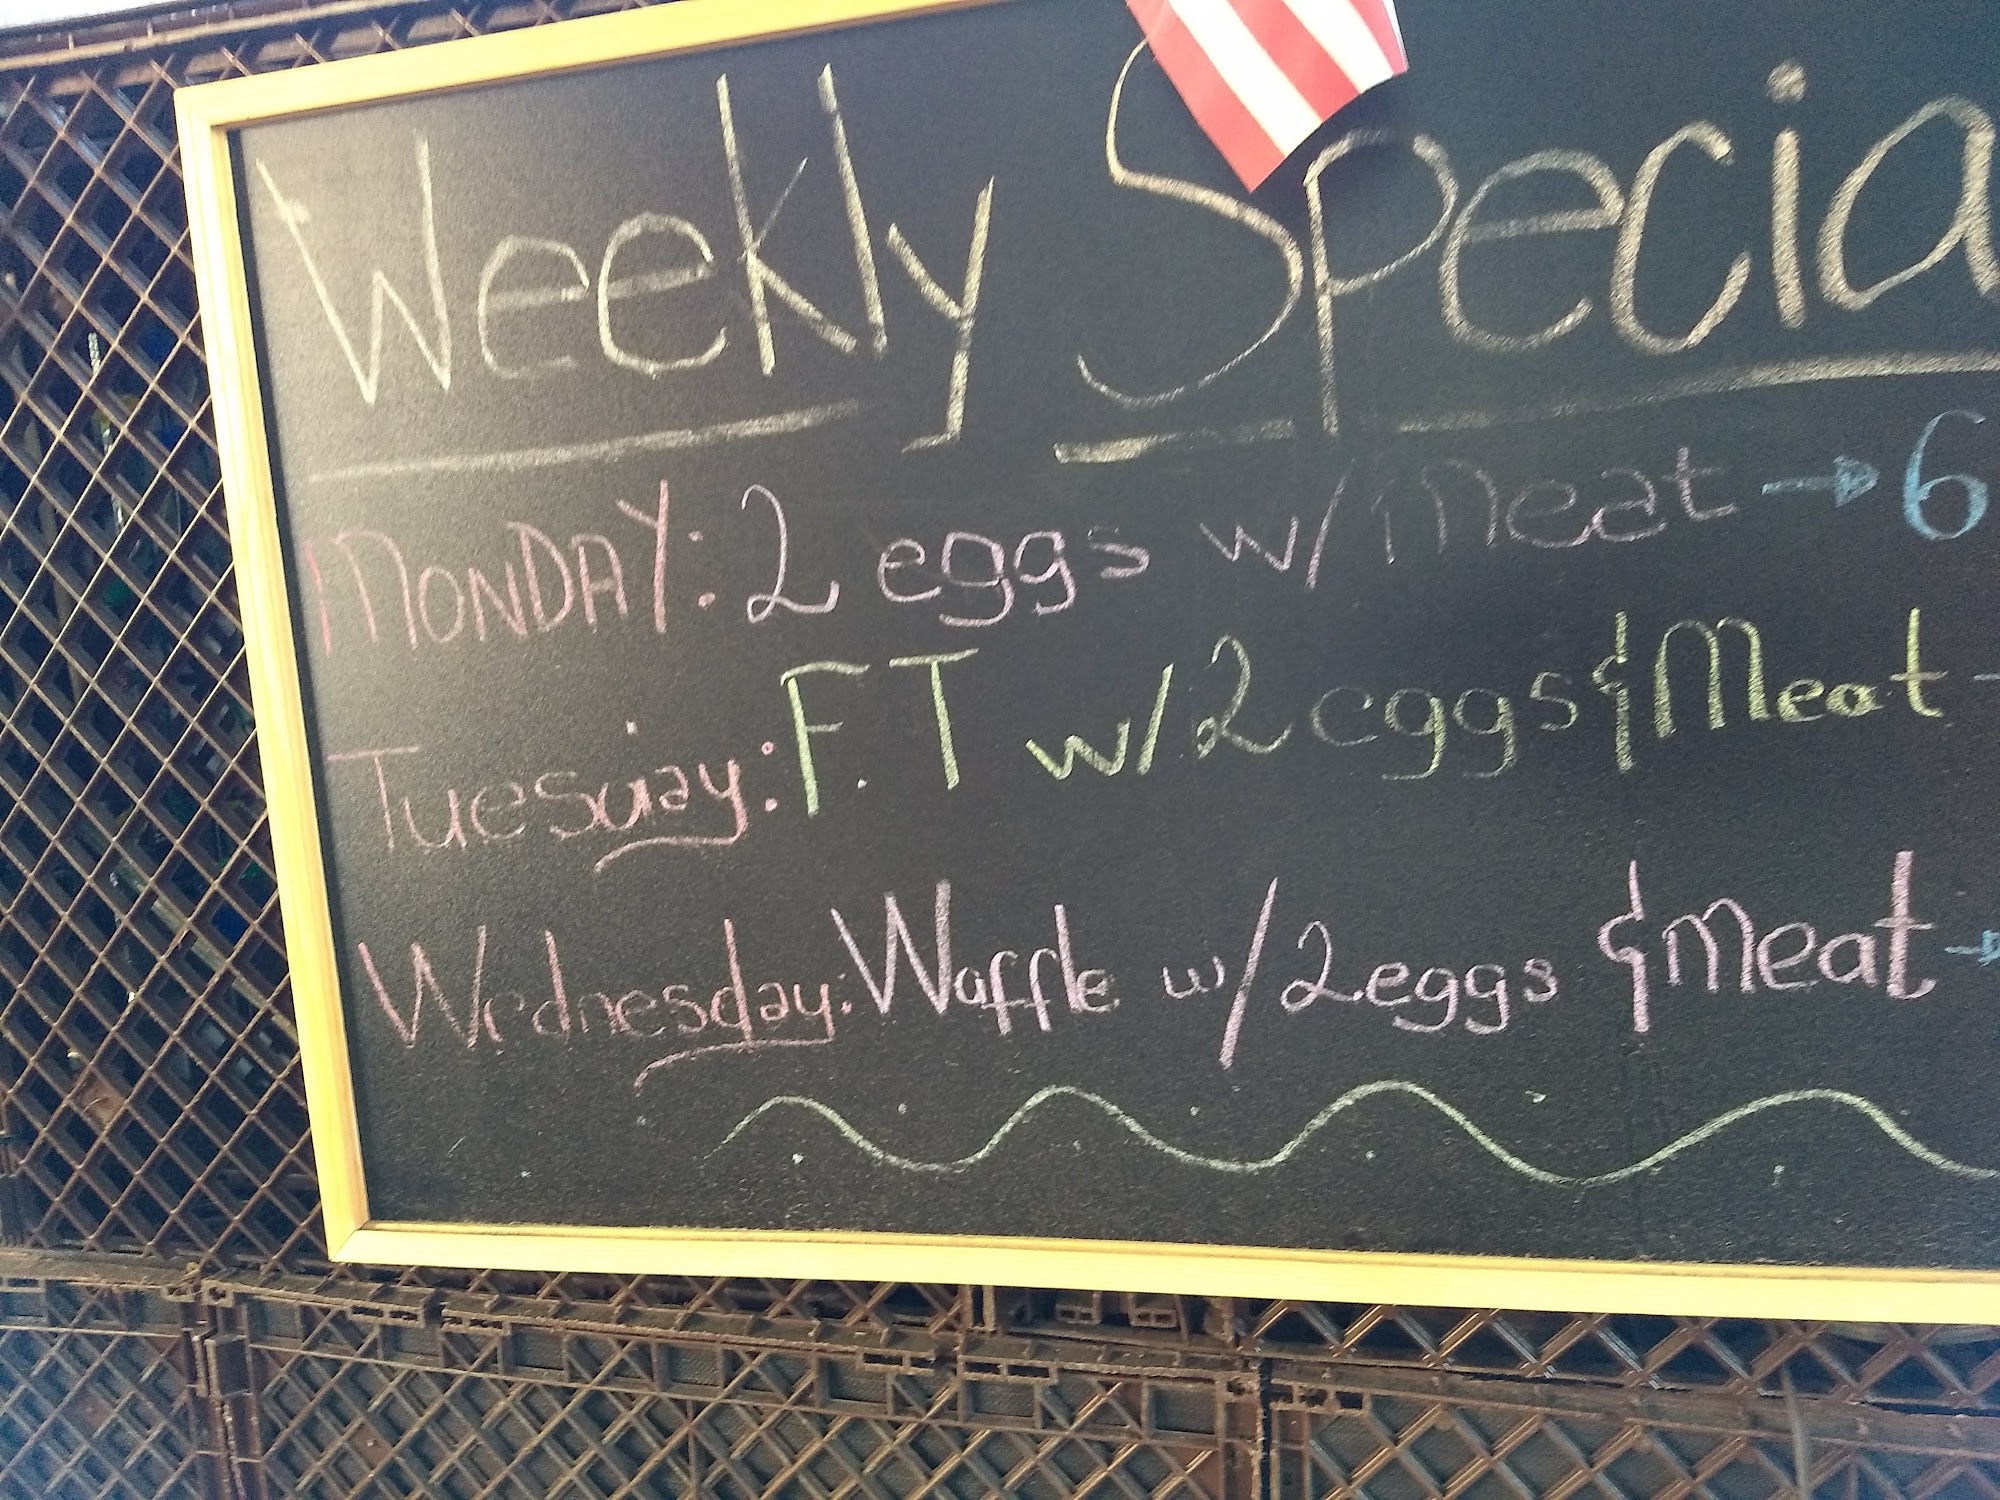 Weekly Specia
MONDAY: 2 eggs w/ meat → 6
Tuesday: F.T w/ 2 eggs & Meat -
Wednesday: Waffle w/ 2 eggs & Meat →